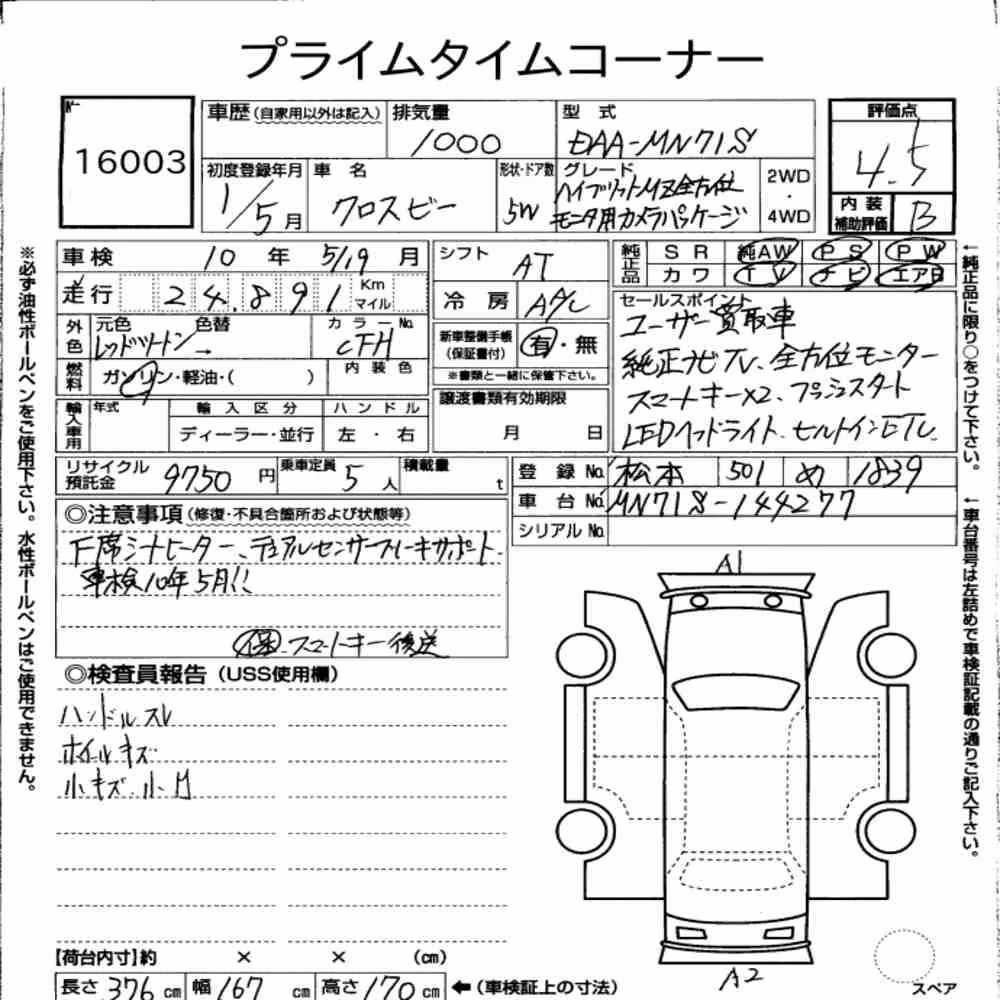 プライムタイムコーナー
16003
車歴(自家用以外は記入) 排気量 1000 型式 DAA-MN71S 評価点 4.5
初度登録年月 1/5月 車名 クロスビー 形状・ドア数 5W グレード ハイブリットMZ全方位モニタ用カメラパッケージ 2WD・4WD
内装補助評価 B
※必ず油性ボールペンをご使用下さい。水性ボールペンはご使用できません。
車検 10年 5/19月 シフト AT 純正品 SR 純AW PS PW
カワ TV ナビ エアB
走行 24891 Km マイル 冷房 A/C
外色 元色 レッドツートン 色替 → カラーNo. CFH
新車整備手帳(保証書付) 有・無
※書類と一緒に保管下さい。
燃料 ガソリン・軽油・( ) 内装色
輸入車用 年式 輸入区分 ハンドル
ディーラー・並行 左・右
譲渡書類有効期限
月 日
セールスポイント
ユーザー買取車
純正ナビTV、全方位モニター
スマートキー×2、プッシュスタート
LEDヘッドライト、ビルトインETC
←純正品に限り○をつけて下さい。
リサイクル預託金 9750円 乗車定員 5人 積載量 t
登録No. 松本 501 め 1839
車台No. MN71S-144277
シリアルNo.
←車台番号は左詰めで車検証記載の通りご記入下さい。
◎注意事項(修復・不具合箇所および状態等)
F席シートヒーター、デュアルセンサーブレーキサポート
車検10年5月!!
保 スマートキー後送
◎検査員報告(USS使用欄)
ハンドルスレ
ホイールキズ
小キズ・小凹
A1
A2
スペア
【荷台内寸】約 × × (cm)
長さ 376 cm 幅 167 cm 高さ 170 cm ←(車検証上の寸法)